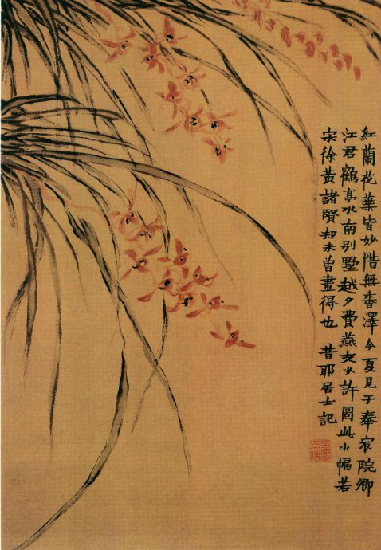 紅蘭花葉皆妙惜無香澤今夏見于奉宸院卿
江君鶴亭水南別墅越夕費燕支少許圖此小幅若
宋徐黄諸賢却未曾畫得也 昔耶居士記